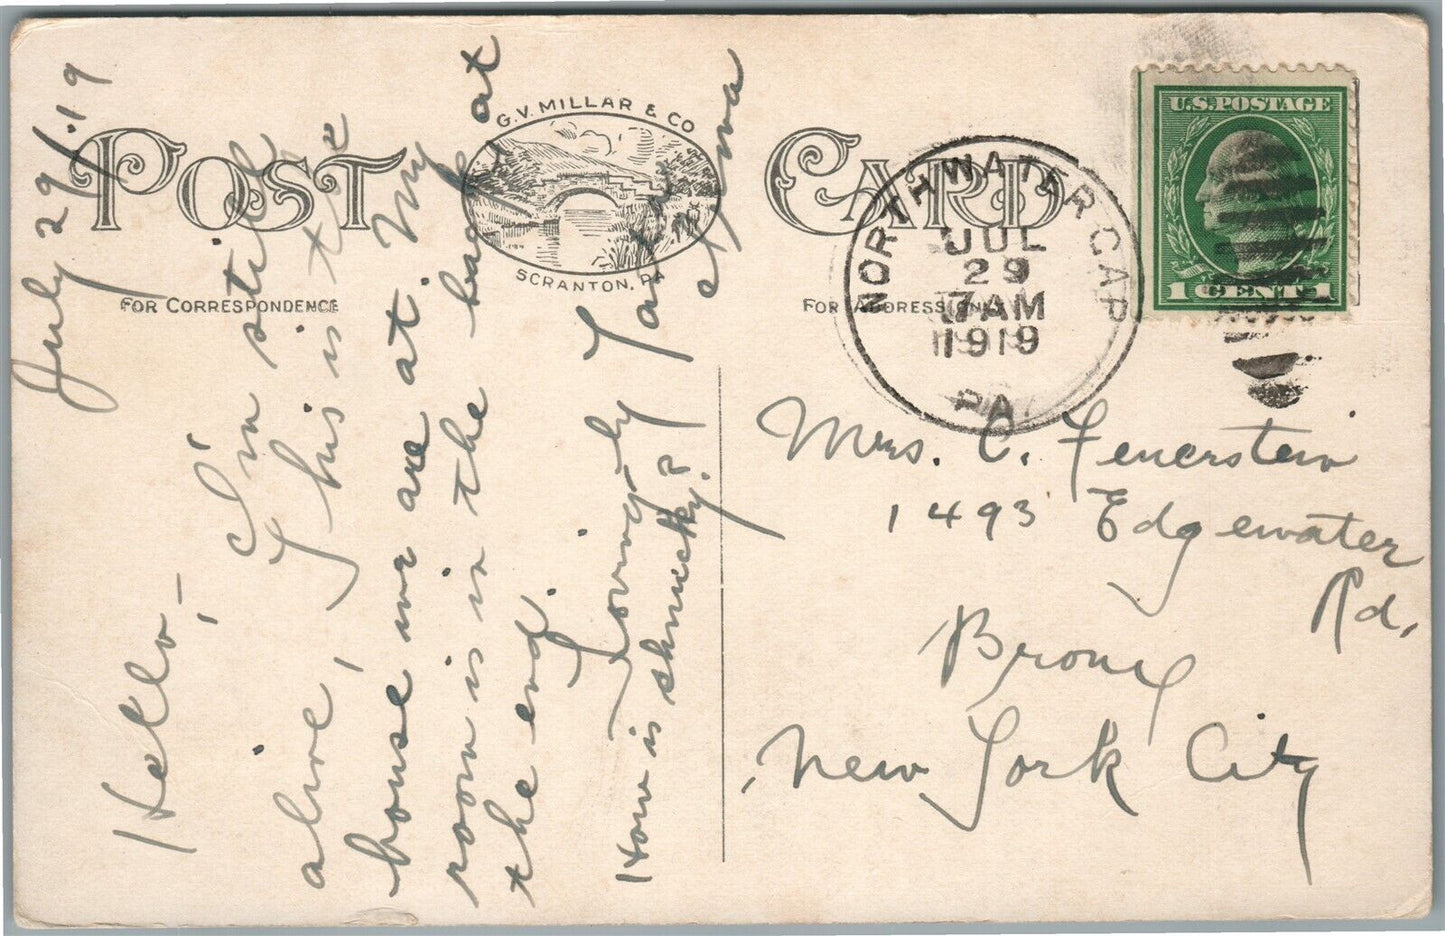 POST CARD
G.V. MILLAR & CO
SCRANTON, PA
FOR CORRESPONDENCE
FOR ADDRESS ONLY
NORTH WATER GAP
JUL
29
7 AM
1919
PA.
U.S. POSTAGE
1 CENT 1
July 29/.19
Hello,-
I'm still
alive, This is the
house we are at. My
room is in the back at
the end.
Lovingly
How is shnucky?
Mrs. C. Feuerstein
1493 Edgewater
Rd,
Bronx
New York City